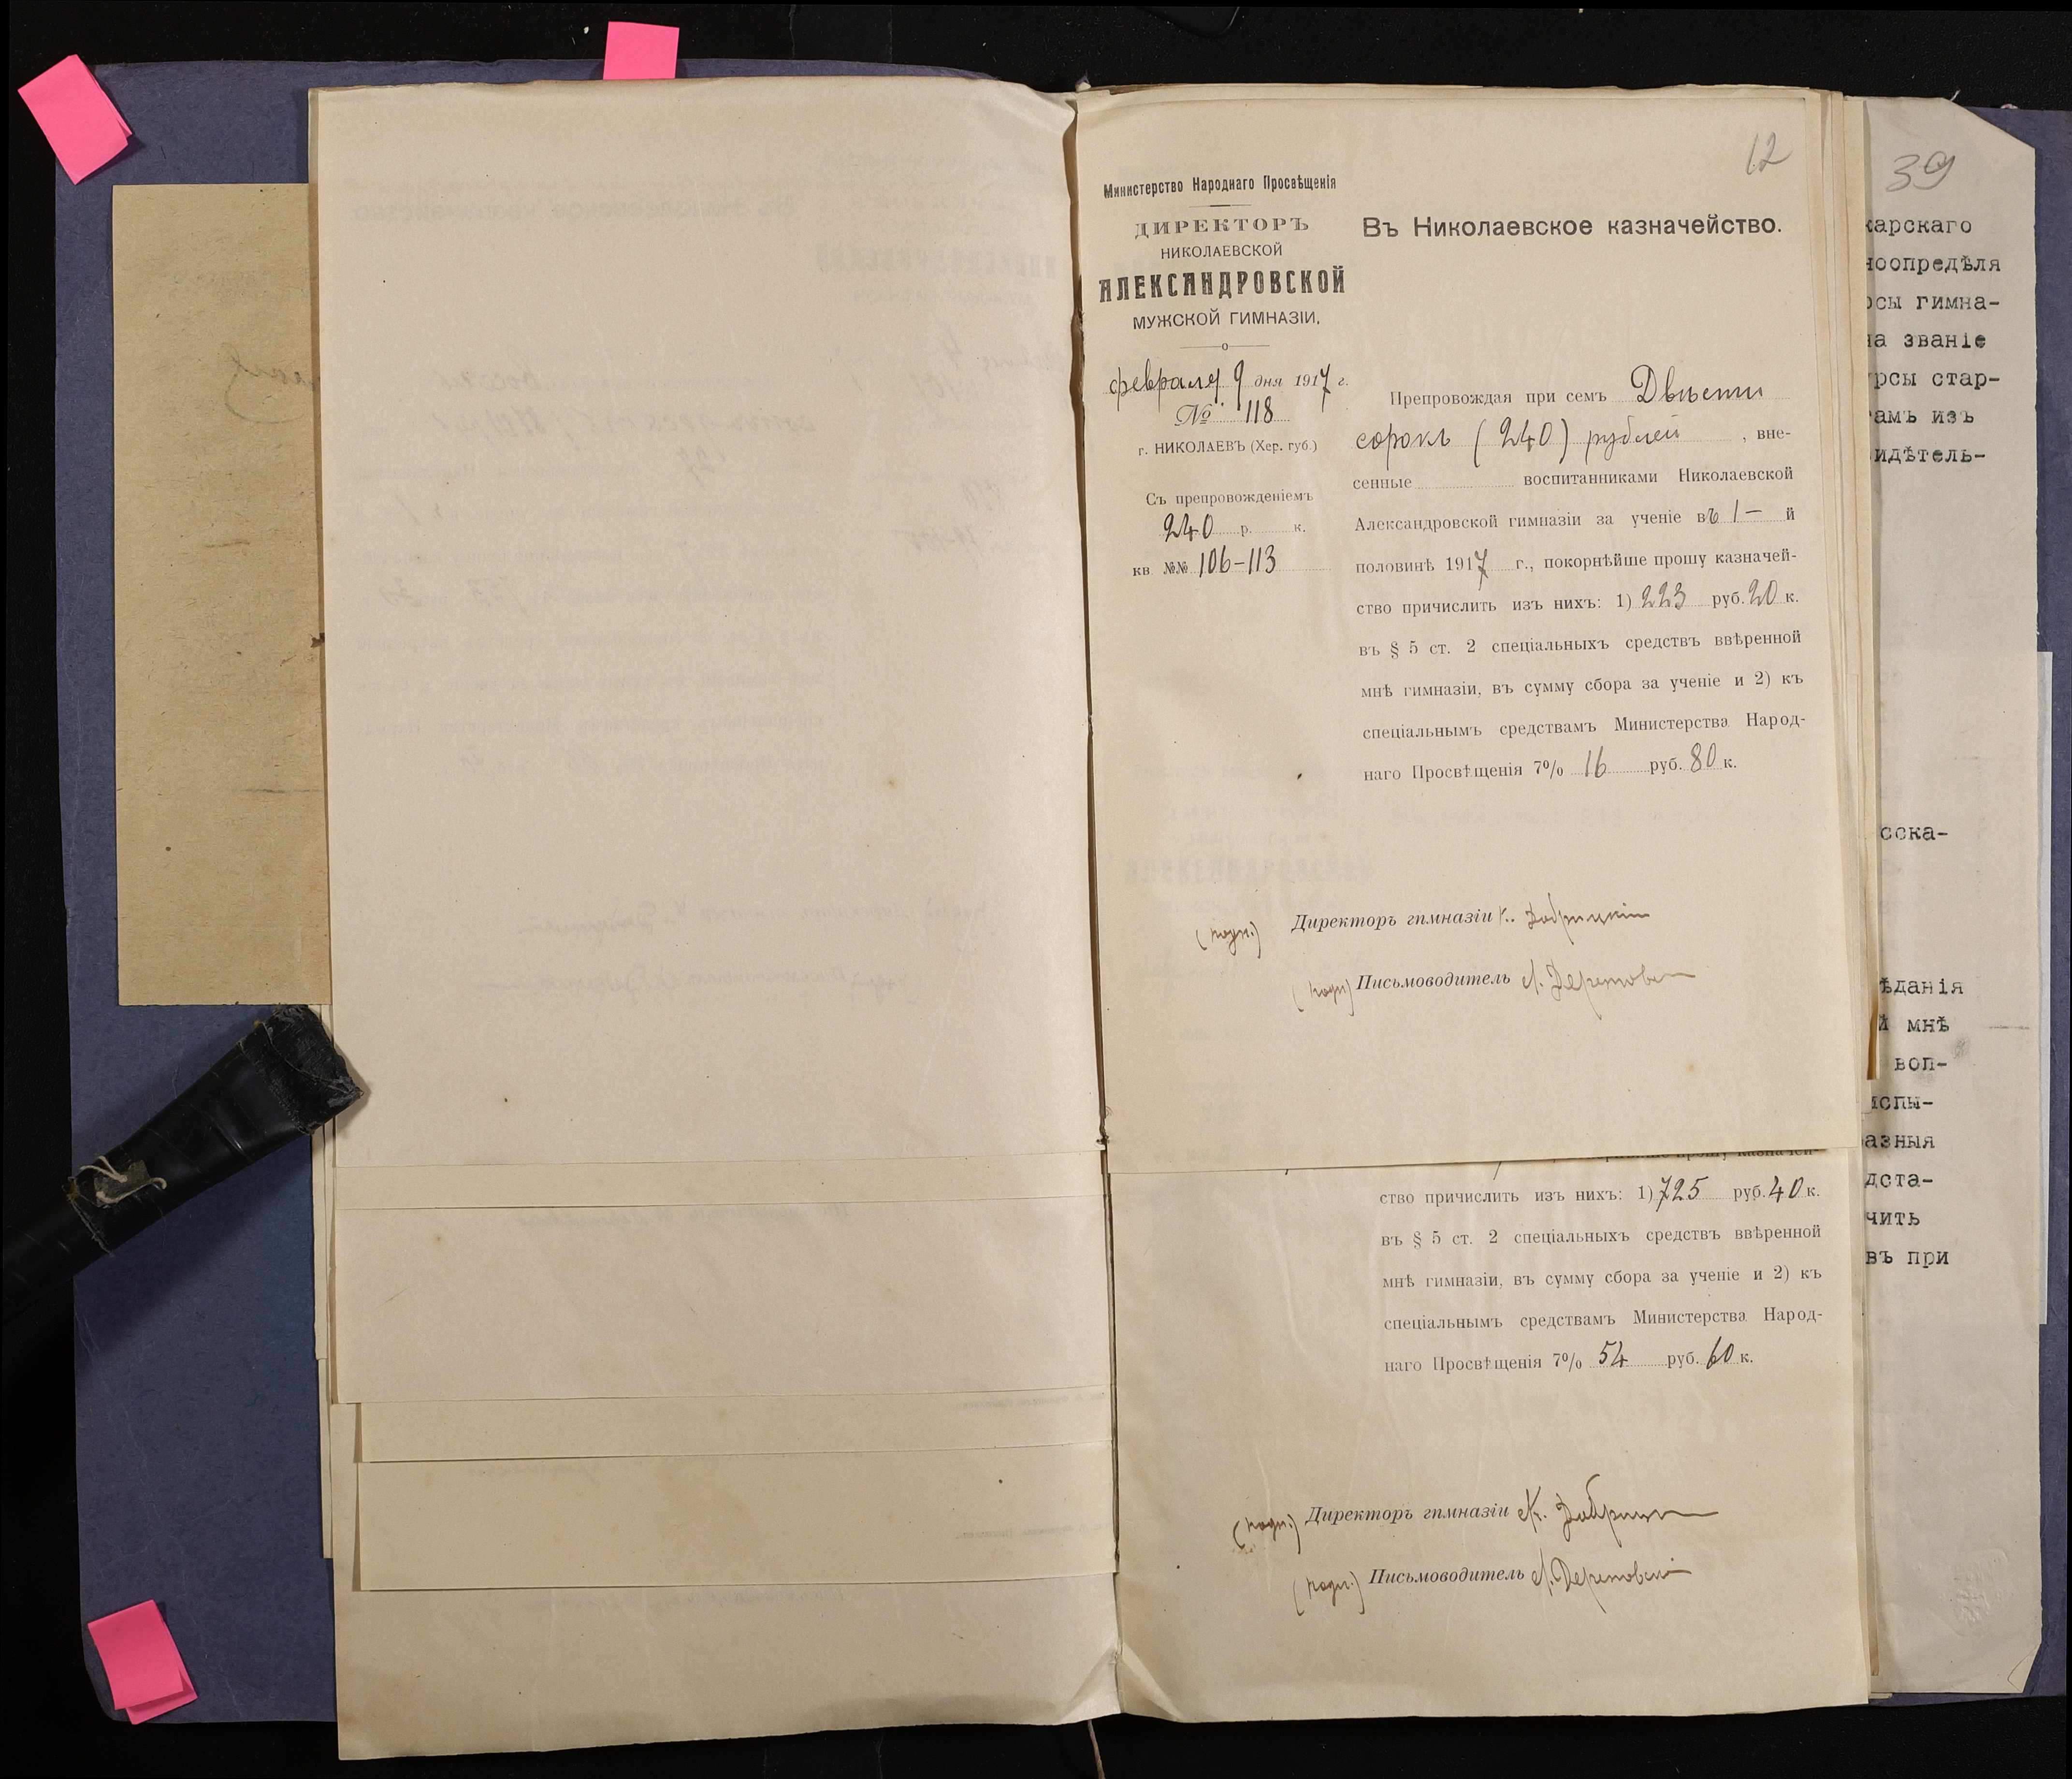 12
Министерство Народнаго Просвѣщенія
ДИРЕКТОРЪ
НИКОЛАЕВСКОЙ
АЛЕКСАНДРОВСКОЙ
МУЖСКОЙ ГИМНАЗІИ.
февраля 9 дня 1917 г.
№ 118
г. НИКОЛАЕВЪ (Хер. губ.)
Съ препровожденіемъ
240 р. к.
кв. №№ 106-113
Въ Николаевское казначейство.
Препровождая при семъ Двѣсти
сорокъ (240) рублей, вне-
сенные воспитанниками Николаевской
Александровской гимназіи за ученіе въ 1-й
половинѣ 1917 г., покорнѣйше прошу казначей-
ство причислить изъ нихъ: 1) 223 руб. 20 к.
въ § 5 ст. 2 спеціальныхъ средствъ ввѣренной
мнѣ гимназіи, въ сумму сбора за ученіе и 2) къ
спеціальнымъ средствамъ Министерства Народ-
наго Просвѣщенія 7% 16 руб. 80 к.
(подп.) Директоръ гимназіи К. Добрицкій
(подп.) Письмоводитель
прошу казначей-
ство причислить изъ нихъ: 1) 725 руб. 40 к.
въ § 5 ст. 2 спеціальныхъ средствъ ввѣренной
мнѣ гимназіи, въ сумму сбора за ученіе и 2) къ
спеціальнымъ средствамъ Министерства Народ-
наго Просвѣщенія 7% 54 руб. 60 к.
(подп.) Директоръ гимназіи К.
(подп.) Письмоводитель
39
карскаго
ноопредѣля
рсы гимна-
на званіе
урсы стар-
тамъ изъ
видѣтель-
сска-
ѣданія
й мнѣ
воп-
испы-
разныя
дста-
чить
въ при